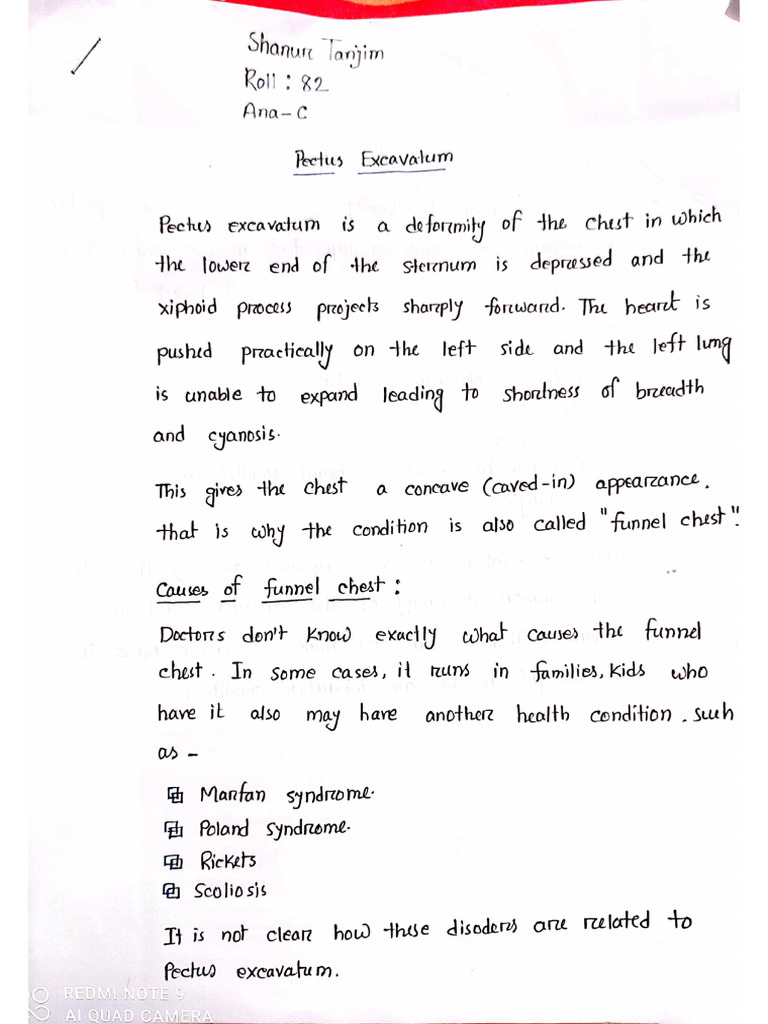 Shanur Tanjim
Roll : 82
Ana-C
Pectus Excavatum
Pectus excavatum is a deformity of the chest in which
the lower end of the sternum is depressed and the
xiphoid process projects sharply forward. The heart is
pushed practically on the left side and the left lung
is unable to expand leading to shortness of breadth
and cyanosis.
This gives the chest a concave (caved-in) appearance.
that is why the condition is also called "funnel chest".
Causes of funnel chest :
Doctors don't know exactly what causes the funnel
chest. In some cases, it runs in families, kids who
have it also may have another health condition. such
as -
Marfan syndrome.
Poland syndrome.
Rickets
Scoliosis
It is not clear how these disoders are related to
Pectus excavatum.
REDMI NOTE 9
AI QUAD CAMERA